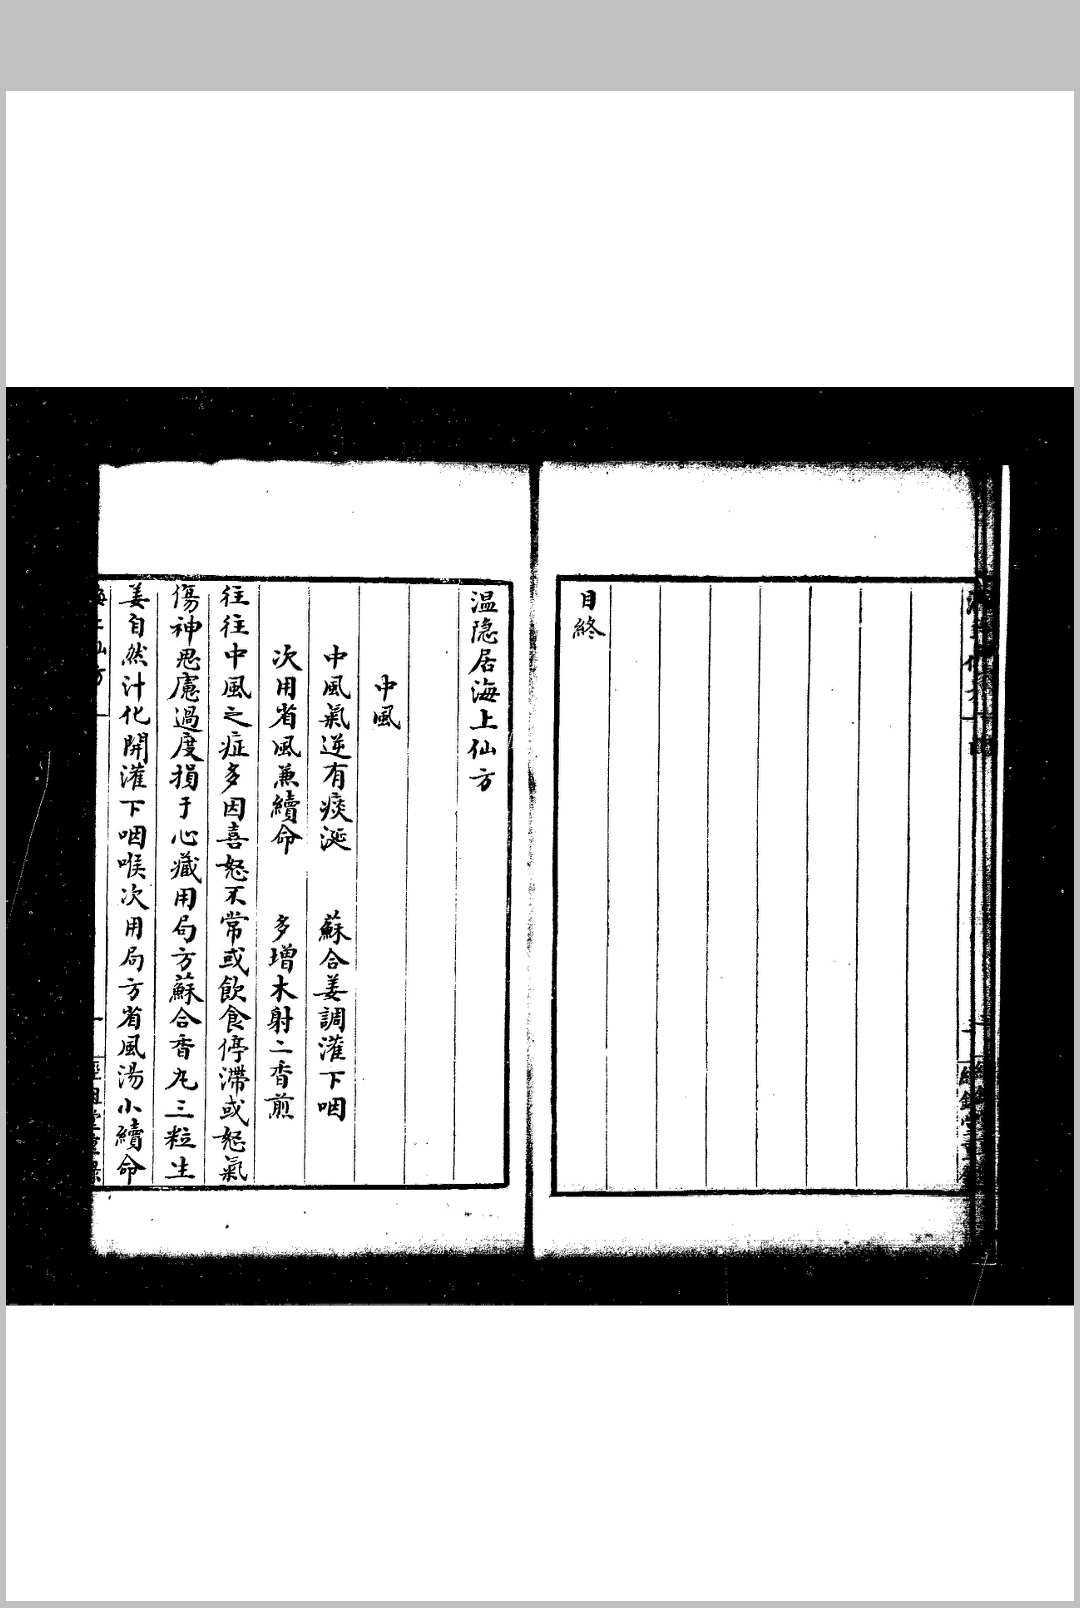 目終
温隐居海上仙方
中風
中風氣逆有痰涎　蘇合姜調灌下咽
次用省風兼續命　多增木射二香煎
往往中風之症多因喜怒不常或飲食停滯或怒氣
傷神思慮過度損于心藏用局方蘇合香丸三粒生
姜自然汁化開灌下咽喉次用局方省風湯小續命